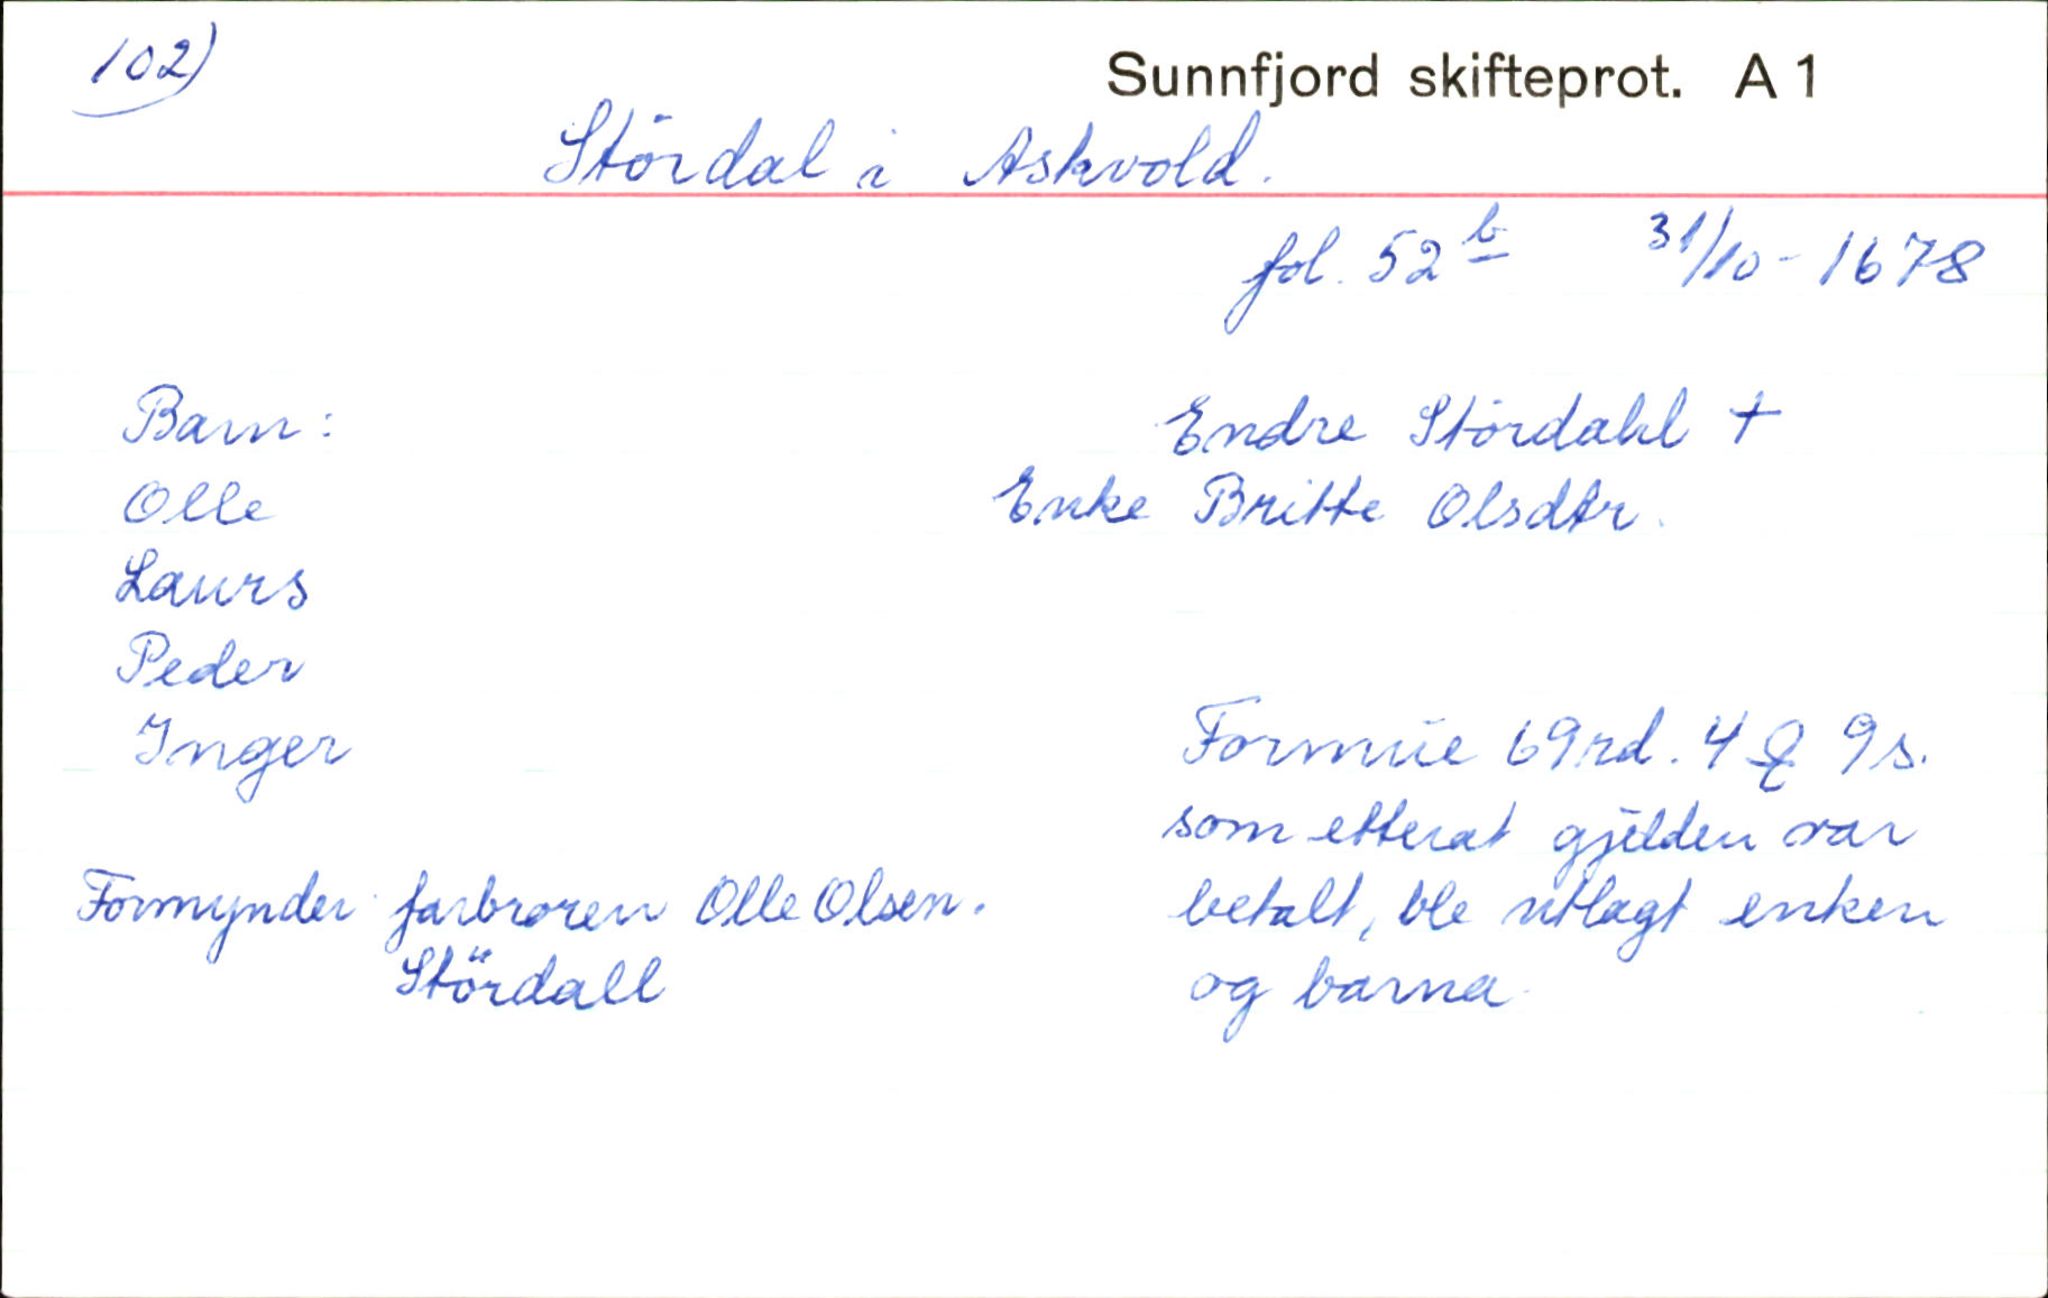 102)
Sunnfjord skifteprot. A 1
Stördal i Askvold.
fol. 52 b 31/10 - 1678
Barn:
Olle
Laurs
Peder
Inger
Formynder farbroren Olle Olsen.
Stördall
Endre Stördahl †
Enke Britte Olsdtr.
Formue 69 rd. 4 9 s.
som etterat gjelden var
betalt, ble utlagt enken
og barna